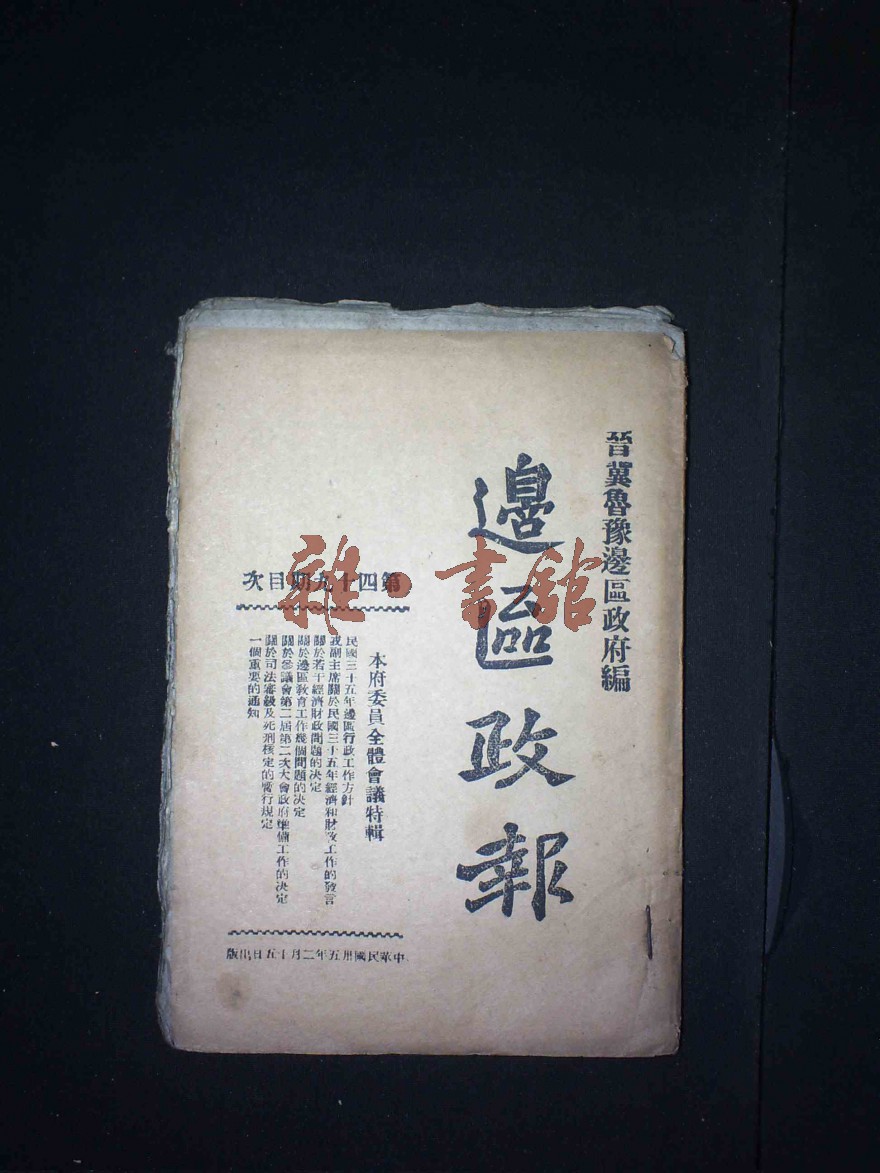 晉冀魯豫邊區政府編
邊區政報
第四十九期目次
本府委員全體會議特輯
民國三十五年邊區行政工作方針
戎副主席關於民國三十五年經濟和財政工作的發言
關於若干經濟財政問題的决定
關於邊區敎育工作幾個問題的决定
關於參議會第二屆第二次大會政府準備工作的决定
關於司法審級及死刑核定的暫行規定
一個重要的通知
中華民國卅五年二月十五日出版
雜·書館